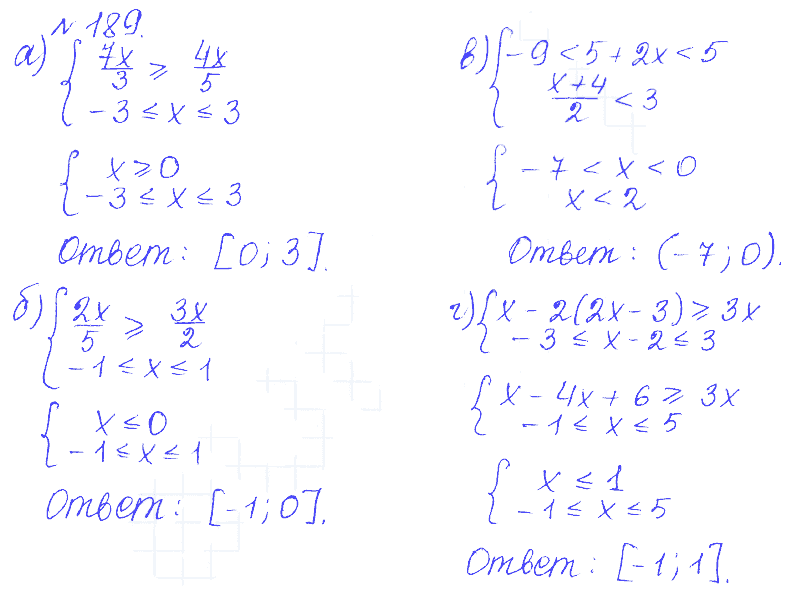 № 189.
а) { 7x/3 ⩾ 4x/5
-3 ≤ x ≤ 3
{ x ⩾ 0
-3 ≤ x ≤ 3
Ответ: [0; 3].
б) { 2x/5 ⩾ 3x/2
-1 ≤ x ≤ 1
{ x ≤ 0
-1 ≤ x ≤ 1
Ответ: [-1; 0].
в) { -9 < 5 + 2x < 5
x+4/2 < 3
{ -7 < x < 0
x < 2
Ответ: (-7; 0).
г) { x - 2(2x - 3) ⩾ 3x
-3 ≤ x - 2 ≤ 3
{ x - 4x + 6 ⩾ 3x
-1 ≤ x ≤ 5
{ x ≤ 1
-1 ≤ x ≤ 5
Ответ: [-1; 1].